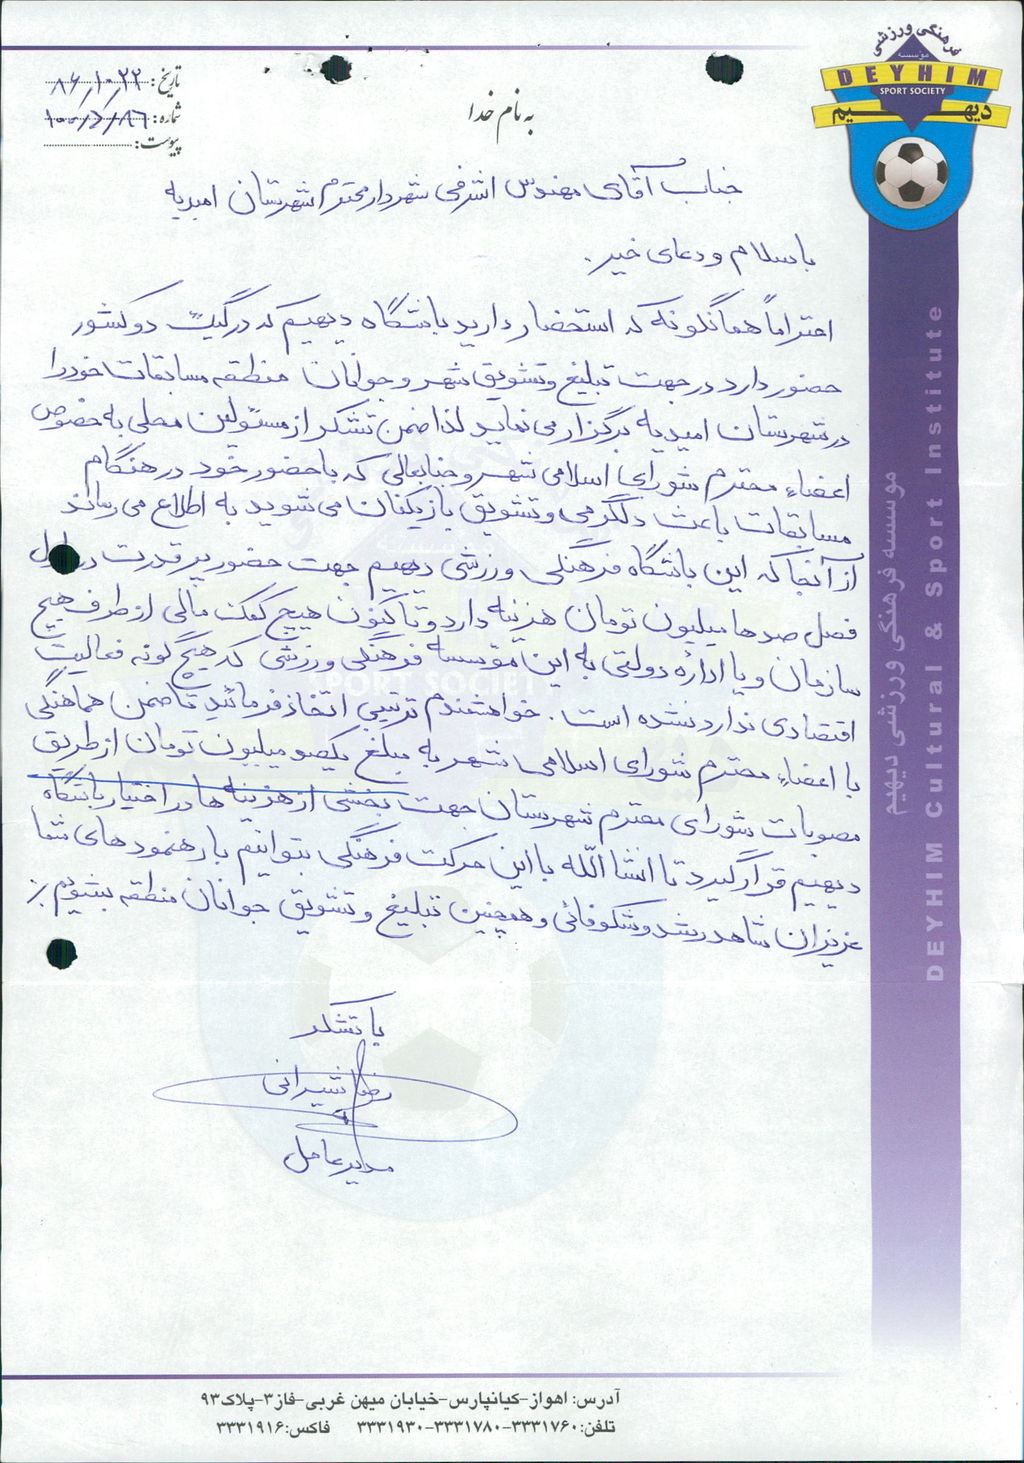 فرهنگی ورزشی
موسسه
DEYHIM
SPORT SOCIETY
دیهیم
تاریخ: ۸۶/۱۰/۲۲
شماره: ۱۰۰/د/۸۶
پیوست:
به نام خدا
جناب آقای مهندس اشرفی شهردار محترم شهرستان امیدیه
با سلام و دعای خیر.
احتراماً همانگونه که استحضار دارید باشگاه دیهیم که در لیگ دو کشور
حضور دارد در جهت تبلیغ و تشویق شهر و جوانان منطقه مسابقات خود را
در شهرستان امیدیه برگزار می نماید لذا ضمن تشکر از مسئولین محلی به خصوص
اعضاء محترم شورای اسلامی شهر و جنابعالی که با حضور خود در هنگام
مسابقات باعث دلگرمی و تشویق بازیکنان می شوید به اطلاع می رساند
از آنجا که این باشگاه فرهنگی ورزشی دیهیم جهت حضور پر قدرت در طول
فصل صدها میلیون تومان هزینه دارد و تاکنون هیچ کمک مالی از طرف هیچ
سازمان و یا اداره دولتی به این مؤسسه فرهنگی ورزشی که هیچ گونه فعالیت
اقتصادی ندارد نشده است. خواهشمندم ترتیبی اتخاذ فرمائید تا ضمن هماهنگی
با اعضاء محترم شورای اسلامی شهر به مبلغ یکصد میلیون تومان از طریق
مصوبات شورای محترم شهرستان جهت بخشی از هزینه ها در اختیار باشگاه
دیهیم قرار گیرد تا انشا الله با این حرکت فرهنگی بتوانیم با رهنمودهای شما
عزیزان شاهد رشد و شکوفائی و همچنین تبلیغ و تشویق جوانان منطقه بشویم./
با تشکر
رضا شیرانی
مدیر عامل
موسسه فرهنگی ورزشی دیهیم
DEYHIM Cultural & Sport Institute
SPORT SOCIETY
آدرس: اهواز-کیانپارس-خیابان میهن غربی-فاز۳-پلاک۹۳
تلفن:۳۳۳۱۷۶۰-۳۳۳۱۷۸۰-۳۳۳۱۹۳۰ فاکس:۳۳۳۱۹۱۶